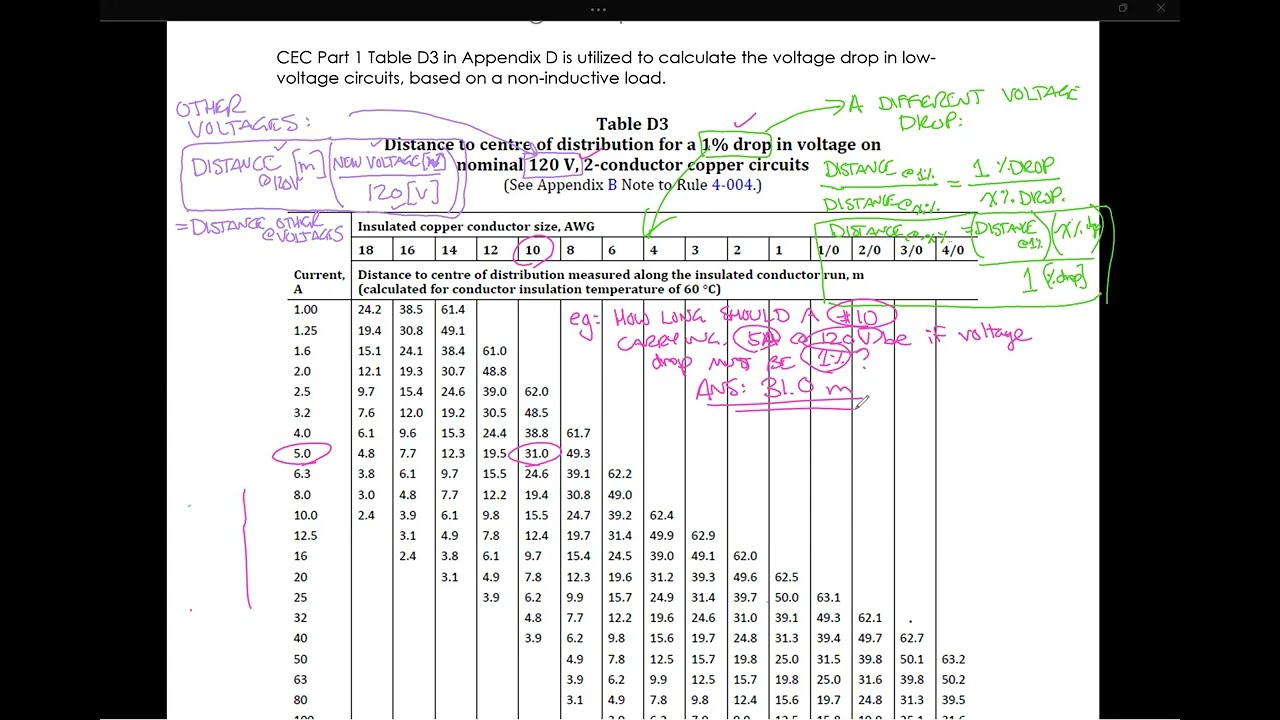 CEC Part 1 Table D3 in Appendix D is utilized to calculate the voltage drop in low-
voltage circuits, based on a non-inductive load.
OTHER
VOLTAGES:
DISTANCE @120V [m] (NEW VOLTAGE [V] / 120 [V])
= DISTANCE OTHER
@ VOLTAGES
A DIFFERENT VOLTAGE
DROP:
DISTANCE @1% / DISTANCE @X% = 1 % DROP / X% DROP.
DISTANCE @X% = (DISTANCE @1%) (X% drop) / 1 [% drop]
Table D3
Distance to centre of distribution for a 1% drop in voltage on
nominal 120 V, 2-conductor copper circuits
(See Appendix B Note to Rule 4-004.)
Insulated copper conductor size, AWG
18 16 14 12 10 8 6 4 3 2 1 1/0 2/0 3/0 4/0
Current, A
Distance to centre of distribution measured along the insulated conductor run, m
(calculated for conductor insulation temperature of 60 °C)
1.00 24.2 38.5 61.4
1.25 19.4 30.8 49.1
1.6 15.1 24.1 38.4 61.0
2.0 12.1 19.3 30.7 48.8
2.5 9.7 15.4 24.6 39.0 62.0
3.2 7.6 12.0 19.2 30.5 48.5
4.0 6.1 9.6 15.3 24.4 38.8 61.7
5.0 4.8 7.7 12.3 19.5 31.0 49.3
6.3 3.8 6.1 9.7 15.5 24.6 39.1 62.2
8.0 3.0 4.8 7.7 12.2 19.4 30.8 49.0
10.0 2.4 3.9 6.1 9.8 15.5 24.7 39.2 62.4
12.5 3.1 4.9 7.8 12.4 19.7 31.4 49.9 62.9
16 2.4 3.8 6.1 9.7 15.4 24.5 39.0 49.1 62.0
20 3.1 4.9 7.8 12.3 19.6 31.2 39.3 49.6 62.5
25 3.9 6.2 9.9 15.7 24.9 31.4 39.7 50.0 63.1
32 4.8 7.7 12.2 19.6 24.6 31.0 39.1 49.3 62.1
40 3.9 6.2 9.8 15.6 19.7 24.8 31.3 39.4 49.7 62.7
50 4.9 7.8 12.5 15.7 19.8 25.0 31.5 39.8 50.1 63.2
63 3.9 6.2 9.9 12.5 15.7 19.8 25.0 31.6 39.8 50.2
80 3.1 4.9 7.8 9.8 12.4 15.6 19.7 24.8 31.3 39.5
eg: HOW LONG SHOULD A #10
CARRYING 5A @ 120V be if voltage
drop must BE 1% ?
ANS: 31.0 m